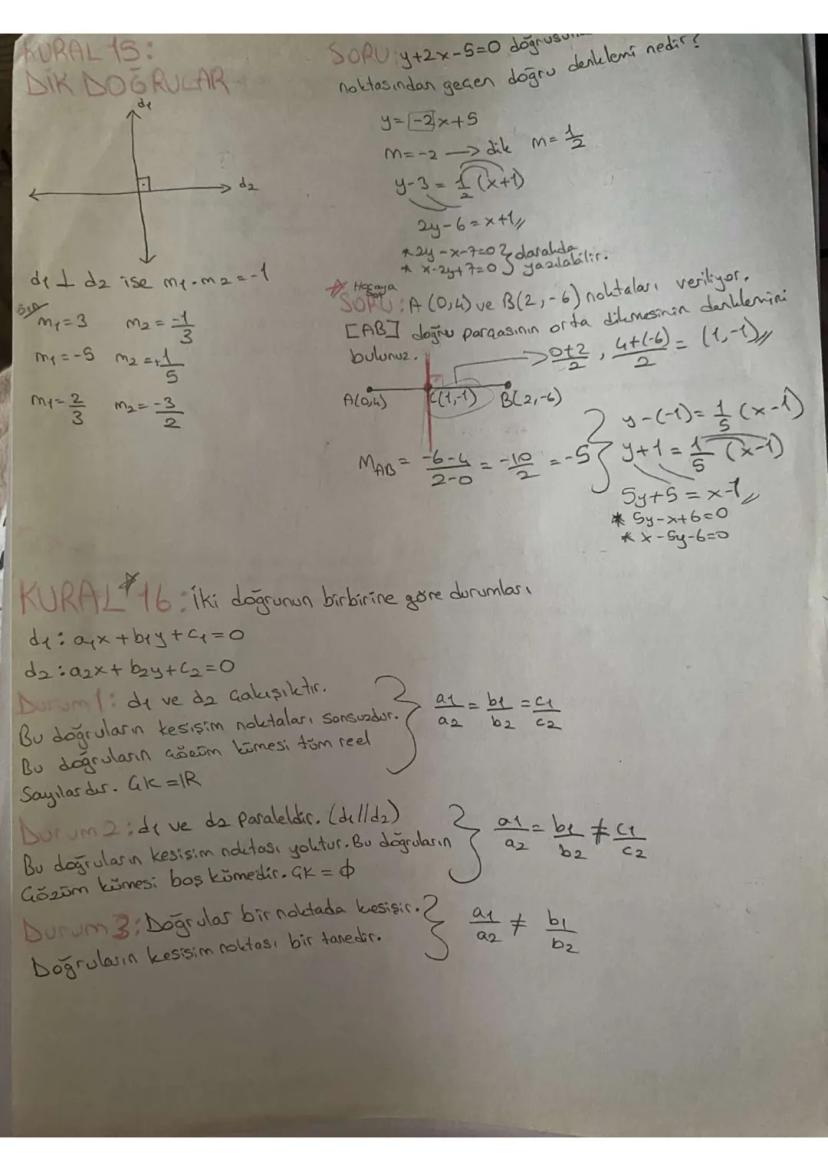 KURAL 15:
DİK DOĞRULAR
d1
d2
d1 ⊥ d2 ise m1 . m2 = -1
m1 = 3 m2 = -1/3
m1 = -5 m2 = +1/5
m1 = 2/3 m2 = -3/2
SORU: y+2x-5=0
noktasından geçen doğru denklemi nedir?
y = -2x+5
m = -2 → dik m = 1/2
y-3 = 1/2 (x+1)
2y-6 = x+1 //
* 2y-x-7=0 } da
* x-2y+7=0 } yazılabilir.
* Hocaya sor
SORU: A(0,4) ve B(2,-6) noktaları veriliyor.
[AB] doğru parçasının orta dikmesinin denklemini
bulunuz. → 0+2/2 , 4+(-6)/2 = (1,-1) //
A(0,4) C(1,-1) B(2,-6)
MAB = -6-4/2-0 = -10/2 = -5
y-(-1) = 1/5 (x-1)
y+1 = 1/5 (x-1)
5y+5 = x-1 //
* 5y-x+6=0
* x-5y-6=0
KURAL* 16: İki doğrunun birbirine göre durumları
d1: a1x+b1y+c1=0
d2: a2x+b2y+c2=0
Durum 1: d1 ve d2 çakışıktır.
Bu doğruların kesişim noktaları sonsuzdur.
Bu doğruların çözüm kümesi tüm reel
Sayılardır. ÇK = IR
a1/a2 = b1/b2 = c1/c2
Durum 2: d1 ve d2 Paraleldir. (d1//d2)
Bu doğruların kesişim noktası yoktur. Bu doğruların
Çözüm kümesi boş kümedir. ÇK = ϕ
a1/a2 = b1/b2 ≠ c1/c2
Durum 3: Doğrular bir noktada kesişir.
Doğruların kesişim noktası bir tanedir.
a1/a2 ≠ b1/b2